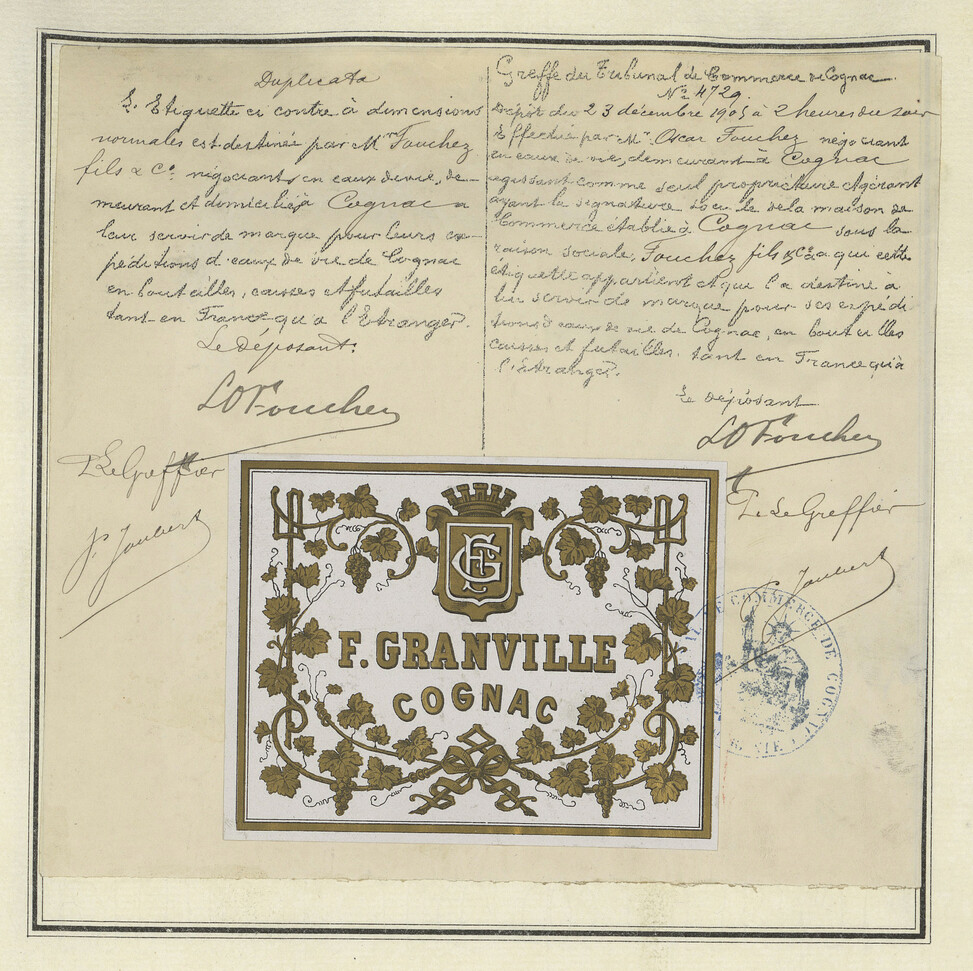 Duplicata
L'Etiquette ci contre à dimensions
normales est destinée par Mr Fouchez
fils & Cie négociants en eaux de vie, de-
meurant et domiciliés à Cognac a
leur servir de marque pour leurs ex-
péditions d'eaux de vie de Cognac
en bouteilles, caisses et futailles
tant en France qu'a l'Etranger.
Le déposant.
LO Fouchez
P. Le Greffier
Joubert
Greffe du Tribunal de Commerce de Cognac
No 4729.
Dépôt du 23 décembre 1905 à 2 heures du soir
Effectué par Mr. Oscar Fouchez négociant
en eaux de vie, demeurant à Cognac
agissant comme seul propriétaire et gérant
ayant la signature sociale de la maison de
Commerce établie à Cognac sous la
raison sociale, Fouchez fils & Cie a qui cette
étiquette appartient et qui l'a destine à
lui servir de marque pour ses expédi-
tions d'eaux de vie de Cognac, en bouteilles
caisses et futailles, tant en France qu'à
l'étranger.
Le déposant
LO Fouchez
P. Le Greffier
Joubert
FG
F. GRANVILLE
COGNAC
DE COMMERCE DE COGNAC